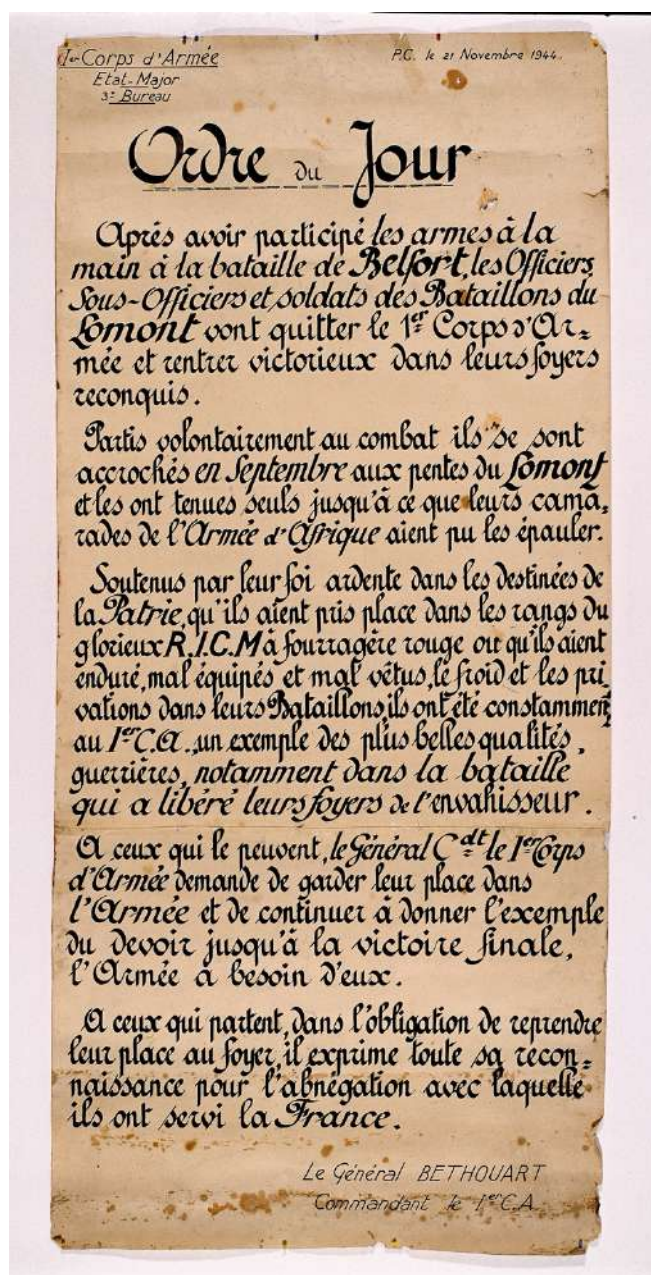 1er Corps d'Armée
Etat-Major
3e Bureau
P.C. le 21 Novembre 1944.
Ordre du Jour
Après avoir participé les armes à la
main à la bataille de Belfort, les Officiers,
Sous-Officiers et soldats des Bataillons du
Lomont vont quitter le 1er Corps d'Ar=
mée et rentrer victorieux dans leurs foyers
reconquis.
Partis volontairement au combat ils se sont
accrochés en Septembre aux pentes du Lomont
et les ont tenues seuls jusqu'à ce que leurs cama=
rades de l'Armée d'Afrique aient pu les épauler.
Soutenus par leur foi ardente dans les destinées de
la Patrie, qu'ils aient pris place dans les rangs du
glorieux R.I.C.M à fourragère rouge ou qu'ils aient
enduré, mal équipés et mal vêtus, le froid et les pri=
vations dans leurs Bataillons, ils ont été constamment
au 1er C.A., un exemple des plus belles qualités
guerrières, notamment dans la bataille
qui a libéré leurs foyers de l'envahisseur.
A ceux qui le peuvent, le Général Cdt le 1er Corps
d'Armée demande de garder leur place dans
l'Armée et de continuer à donner l'exemple
du devoir jusqu'à la victoire finale,
l'Armée a besoin d'eux.
A ceux qui partent, dans l'obligation de reprendre
leur place au foyer, il exprime toute sa recon=
naissance pour l'abnégation avec laquelle
ils ont servi la France.
Le Général BETHOUART
Commandant le 1er C.A.